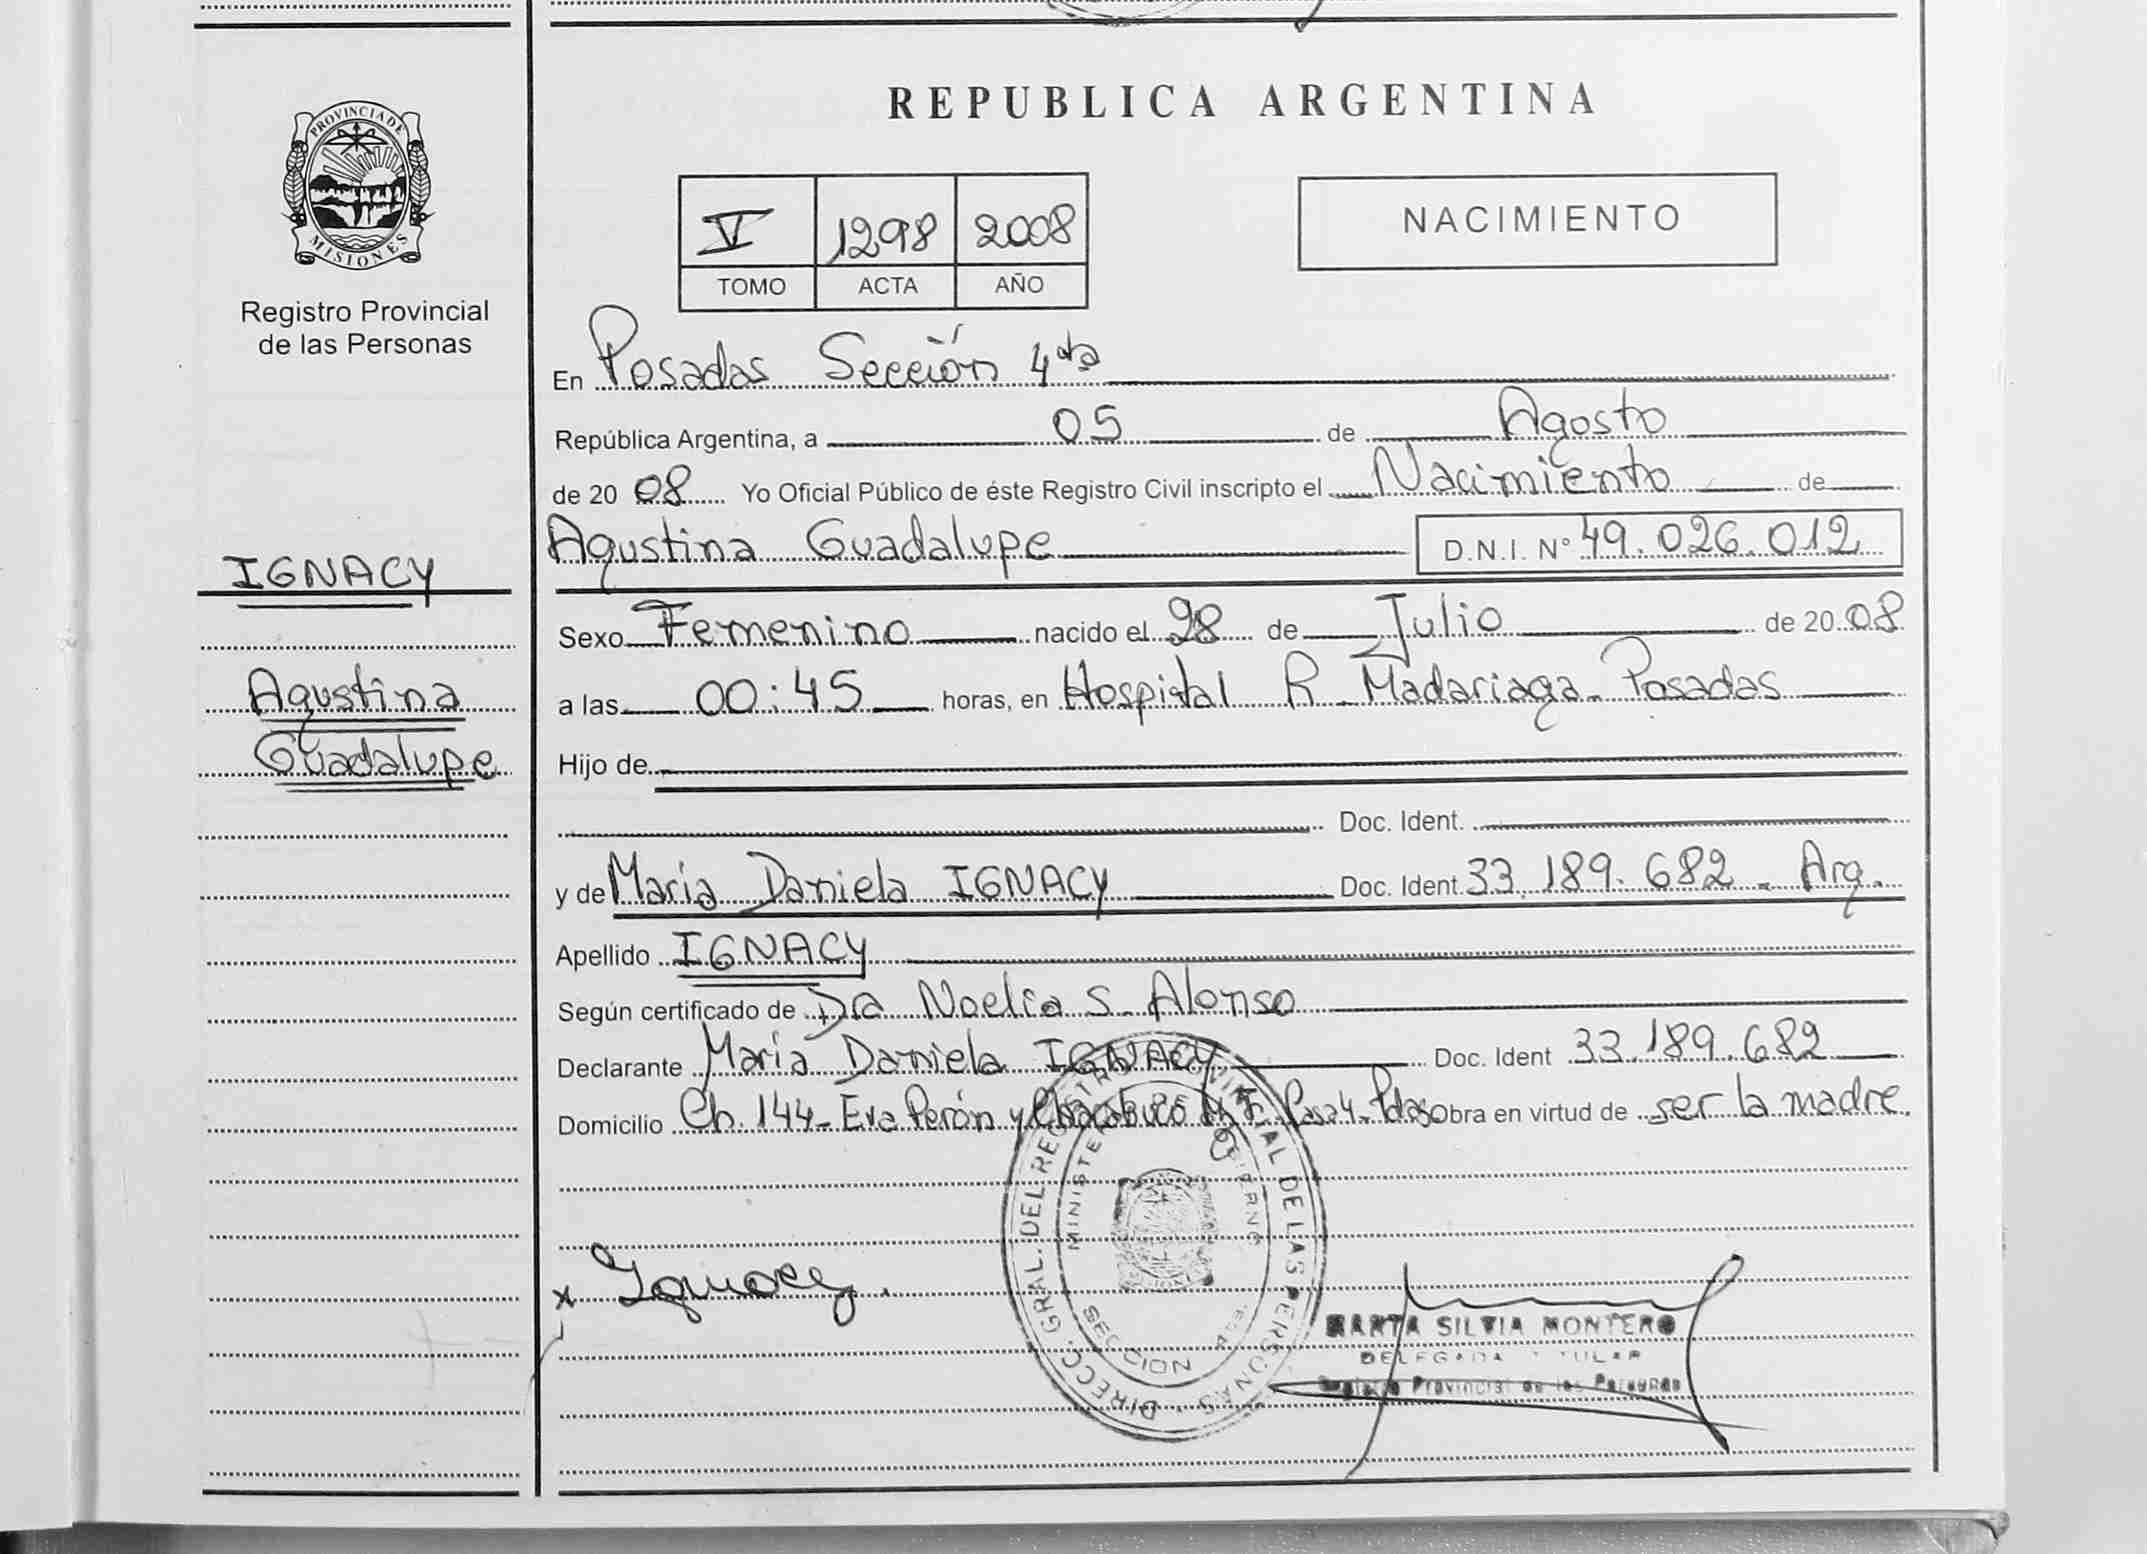 PROVINCIA DE
MISIONES
Registro Provincial
de las Personas
IGNACY
Agustina
Guadalupe
REPUBLICA ARGENTINA
V 1298 2008
TOMO ACTA AÑO
NACIMIENTO
En Posadas Sección 4ta
República Argentina, a 05 de Agosto
de 2008 Yo Oficial Público de éste Registro Civil inscripto el Nacimiento de
Agustina Guadalupe D.N.I. Nº 49.026.012
Sexo Femenino nacido el 28 de Julio de 2008
a las 00:45 horas, en Hospital R. Madariaga - Posadas
Hijo de
Doc. Ident.
y de Maria Daniela IGNACY Doc. Ident. 33.189.682 - Arg.
Apellido IGNACY
Según certificado de Dra Noelia S. Alonso
Declarante Maria Daniela IGNACY Doc. Ident 33.189.682
Domicilio Ch. 144 - Eva Perón y Chacabuco obra en virtud de ser la madre.
DIRECC. GRAL. DEL REGISTRO PROVINCIAL DE LAS PERSONAS
SECCION
x Ignacy.
MARTA SILVIA MONTERO
DELEGADA TITULAR
Registro Provincial de las Personas